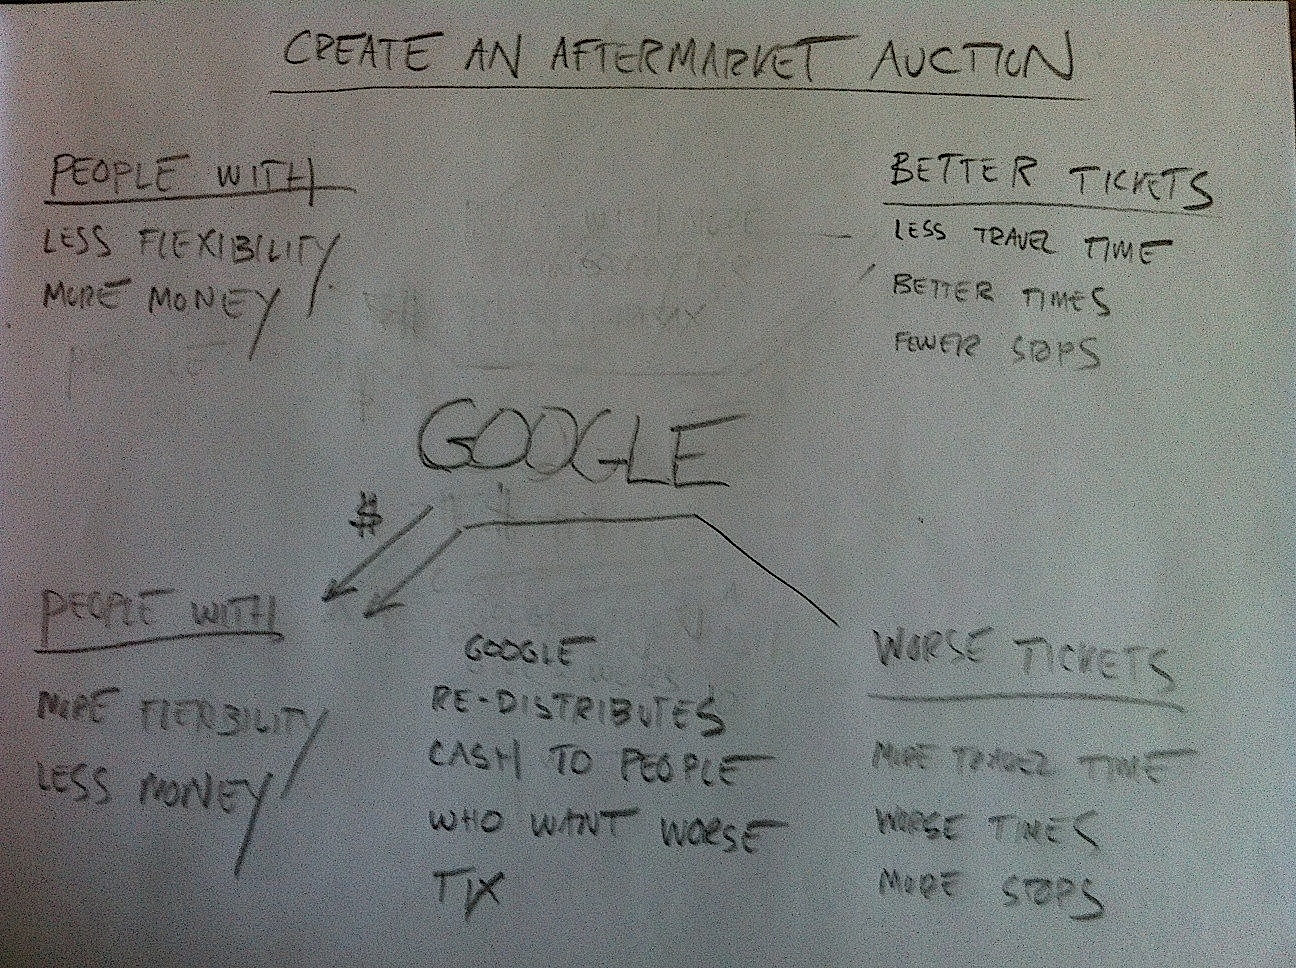 CREATE AN AFTERMARKET AUCTION
PEOPLE WITH
LESS FLEXIBILITY
MORE MONEY
BETTER TICKETS
LESS TRAVEL TIME
BETTER TIMES
FEWER STOPS
GOOGLE
$
PEOPLE WITH
MORE FLEXBILITY
LESS MONEY
GOOGLE
RE-DISTRIBUTES
CASH TO PEOPLE
WHO WANT WORSE
TIX
WORSE TICKETS
MORE TRAVEL TIME
WORSE TIMES
MORE STOPS